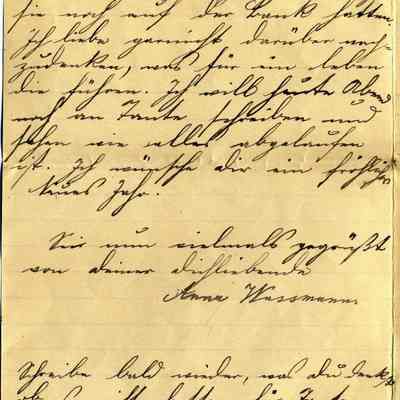 sie noch auf der Bank hatten.
Ich liebe garnicht darüber nach-
zudenken, was für ein leben
die führen. Ich will heute Abend
noch an Tante schreiben und
sehen wie alles abgelaufen
ist. Ich wünsche dir ein fröhliches
Neues Jahr.
Sei nun vielmals gegrüßt
von deiner dichliebende
Anna Wassmann
Schreibe bald wieder, was du denkst